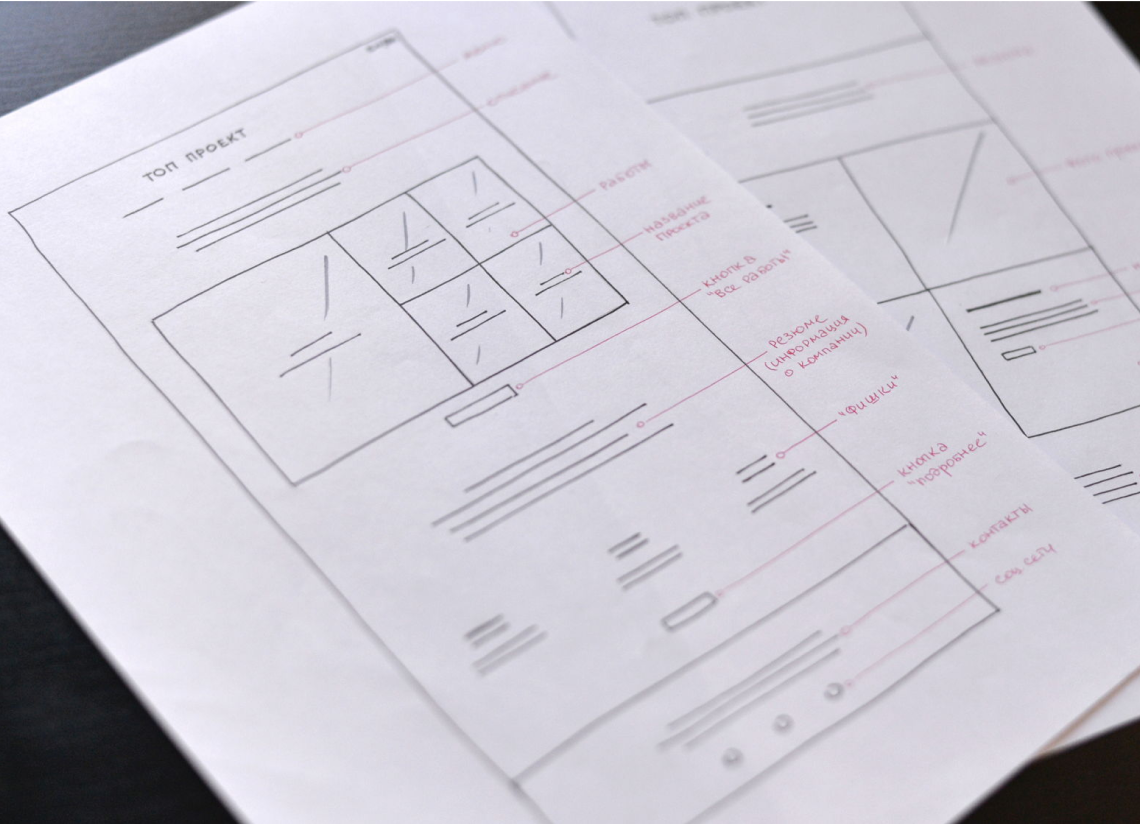 ТОП ПРОЕКТ
МЕНЮ
ОПИСАНИЕ
РАБОТЫ
НАЗВАНИЕ
ПРОЕКТА
КНОПКА
"ВСЕ РАБОТЫ"
РЕЗЮМЕ
(ИНФОРМАЦИЯ
О КОМПАНИИ)
"ФИШКИ"
КНОПКА
"ПОДРОБНЕЕ"
КОНТАКТЫ
СОЦ СЕТИ
ТОП ПРОЕКТ